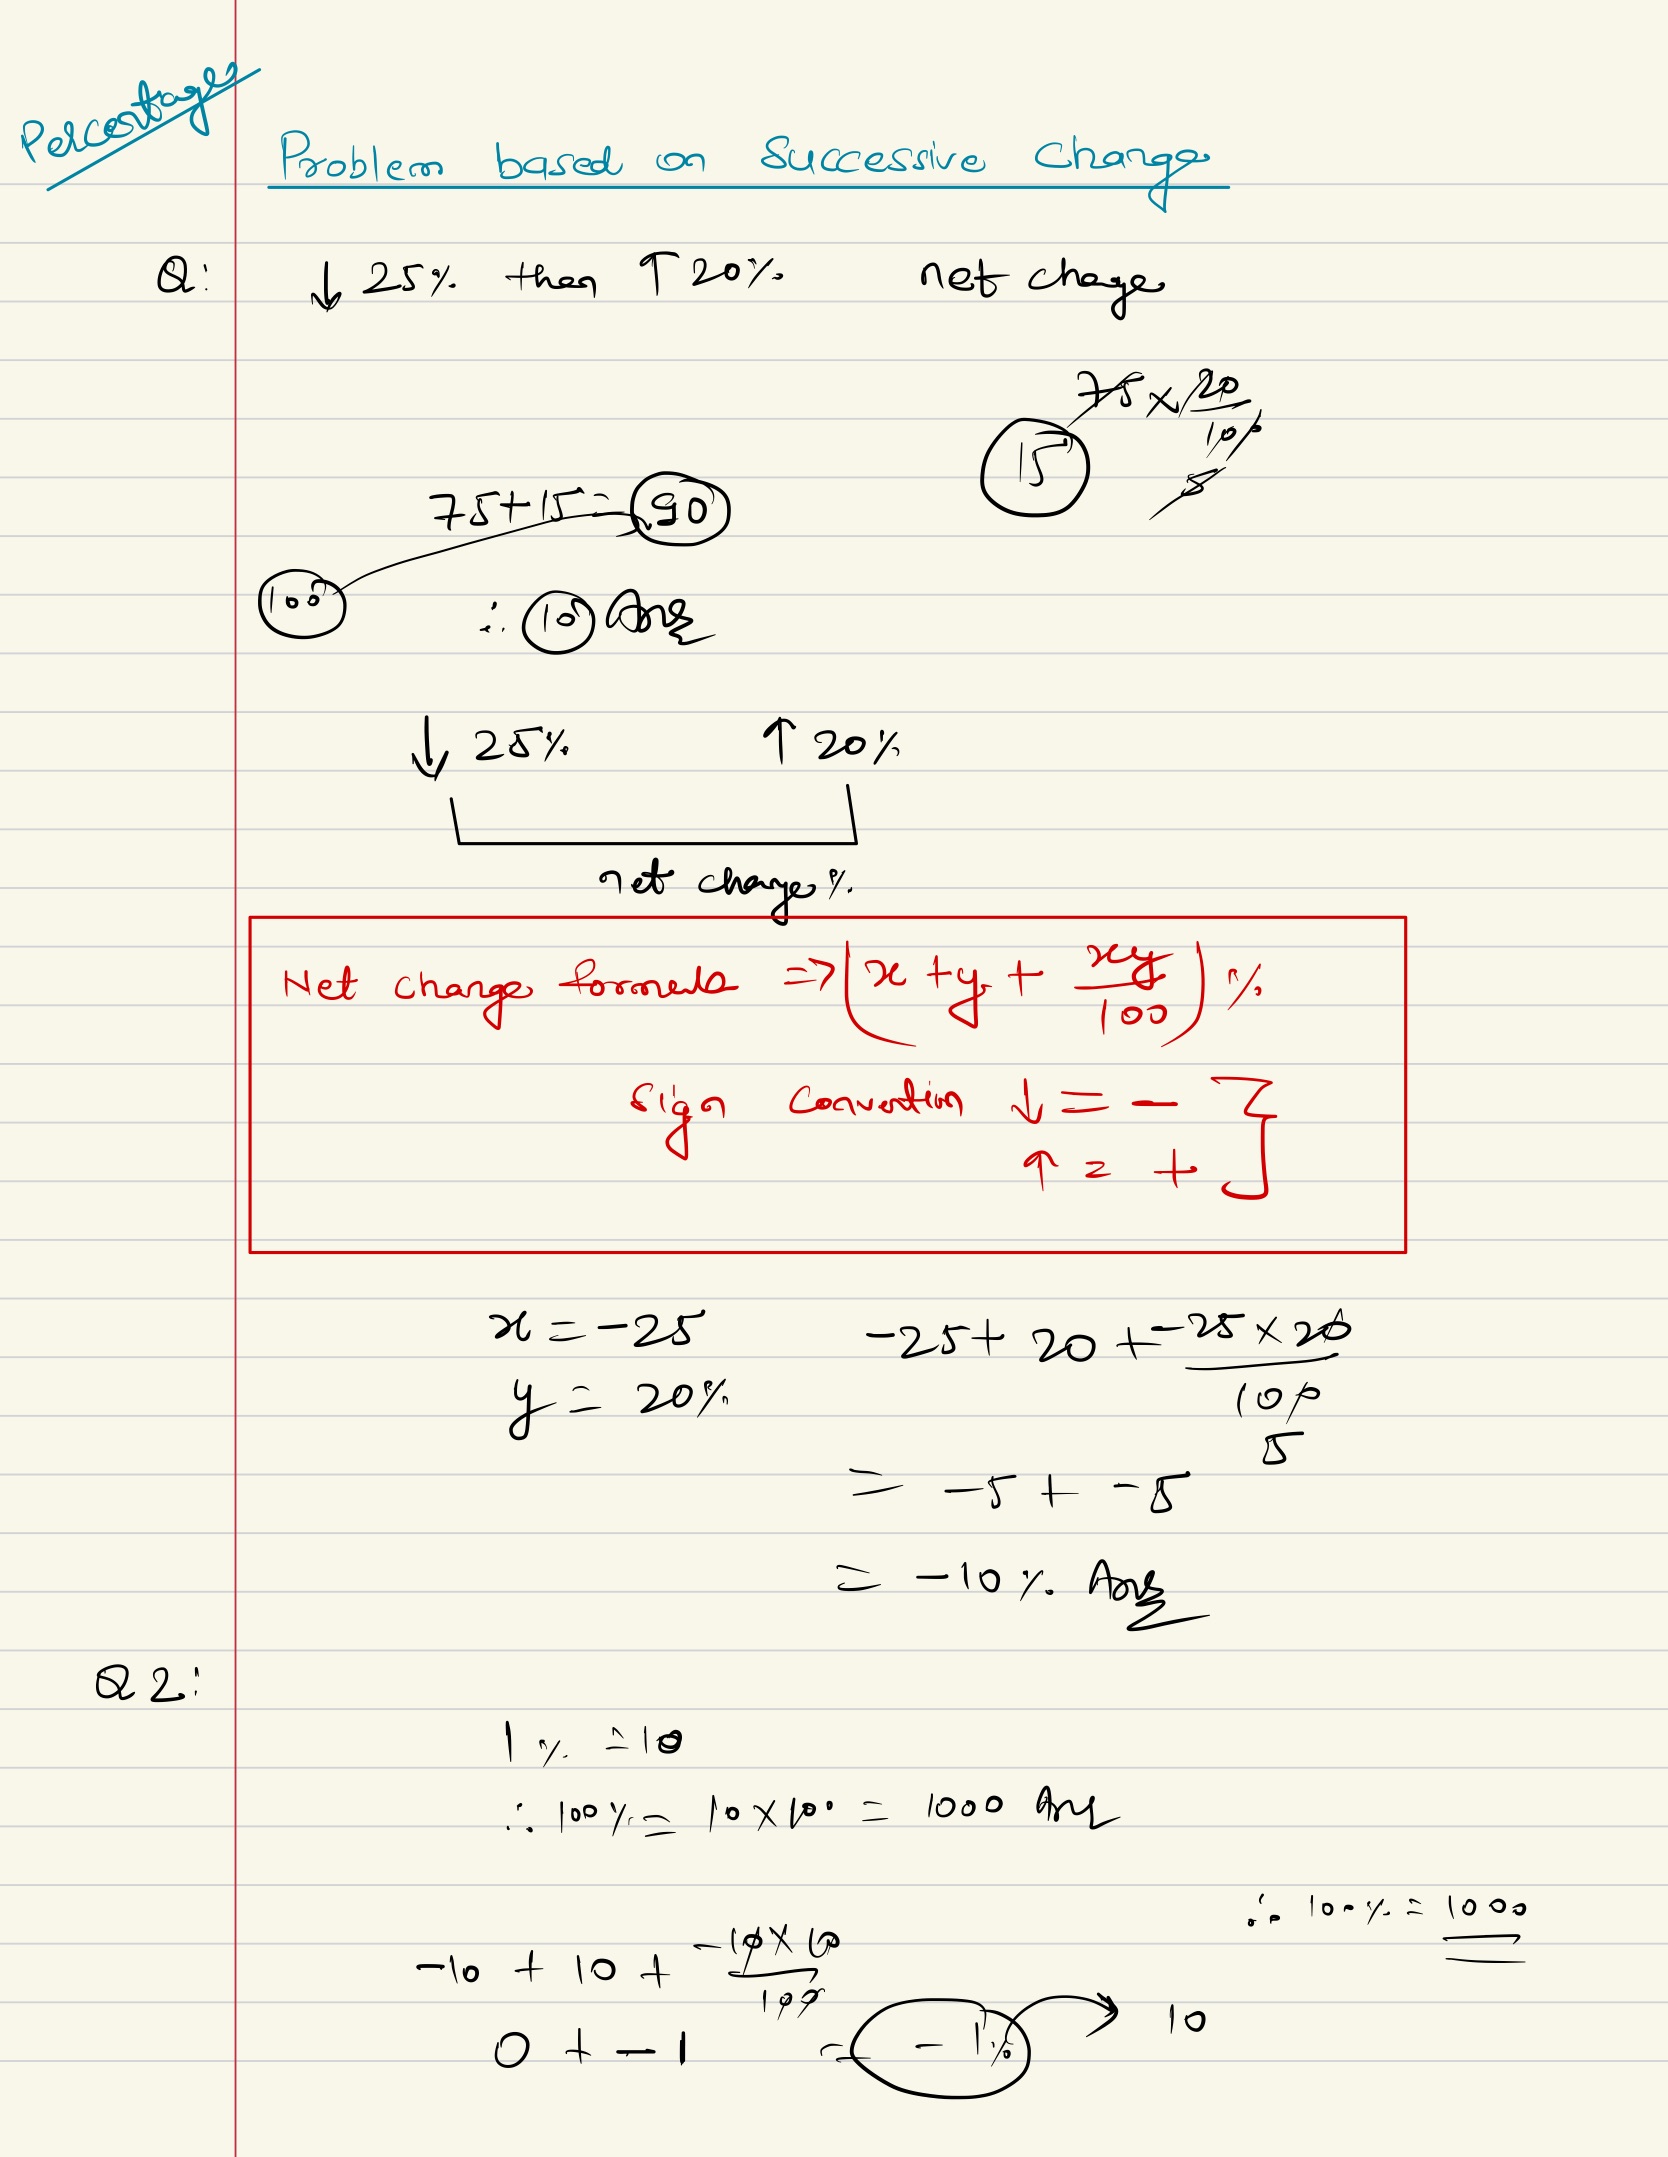 Percentage
Problem based on Successive Change
Q: ↓ 25% then ↑ 20% net change
75 × 20/100
5
15
75 + 15 = 90
100
∴ 10 Ans
↓ 25% ↑ 20%
net change %
Net change formula => (x + y + xy/100) %
Sign Convention ↓ = −
↑ = +
x = −25
y = 20%
−25 + 20 + −25 × 20/100
5
= −5 + −5
= −10 % Ans
Q2:
1 % = 10
∴ 100% = 10 × 100 = 1000 Ans
∴ 100 % = 1000
−10 + 10 + −10 × 10/100
0 + −1 = −1% → 10